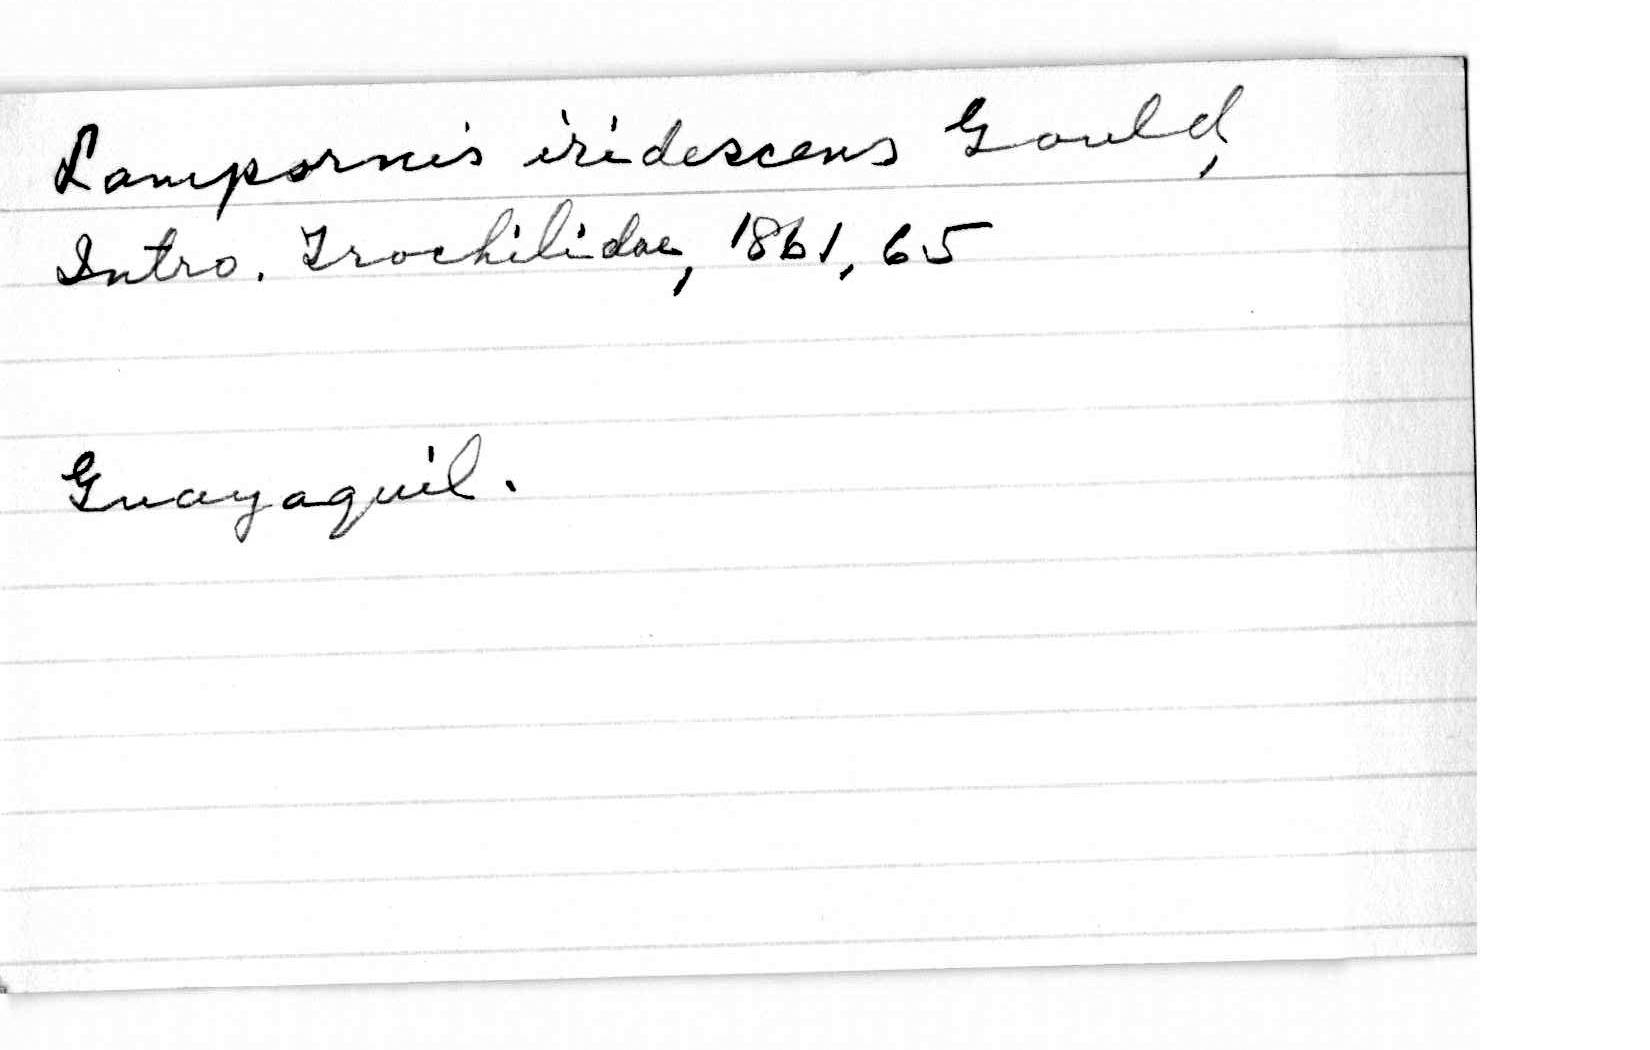 Lampornis iridescens Gould,
Intro. Trochilidae, 1861, 65
Guayaquil.